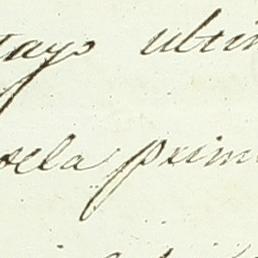 tayo ultim
sela prim